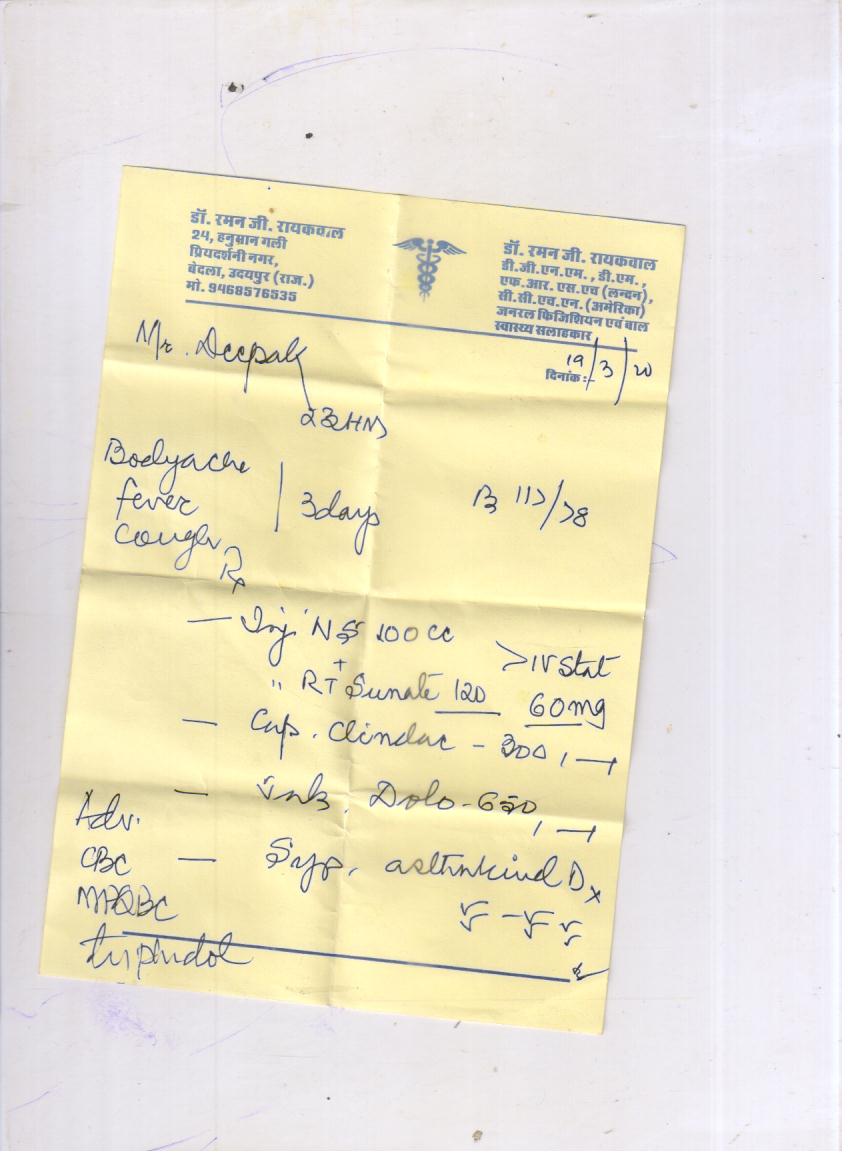 डॉ. रमन जी. रायकवाल
24, हनुमान गली
प्रियदर्शनी नगर,
बेदला, उदयपुर (राज.)
मो. 9468576535
डॉ. रमन जी. रायकवाल
डी.जी.एन.एम., डी.एम.,
एफ.आर. एस.एच (लन्दन),
सी.सी.एच.एन. (अमेरिका)
जनरल फिजिशियन एवं बाल
स्वास्थ्य सलाहकार
Mr. Deepak
दिनांक :- 19/3/20
Bodyache
fever
cough
3days
Rx
— Inj' NS 100 cc
+
" RT Sunate 120
> IV Stat
60mg
— Cap. Clindac - 300, 1—1
— Tab. Dolo-650, 1—1
Adv.
CBC
— Syp. asthakind Dx
MPQBC